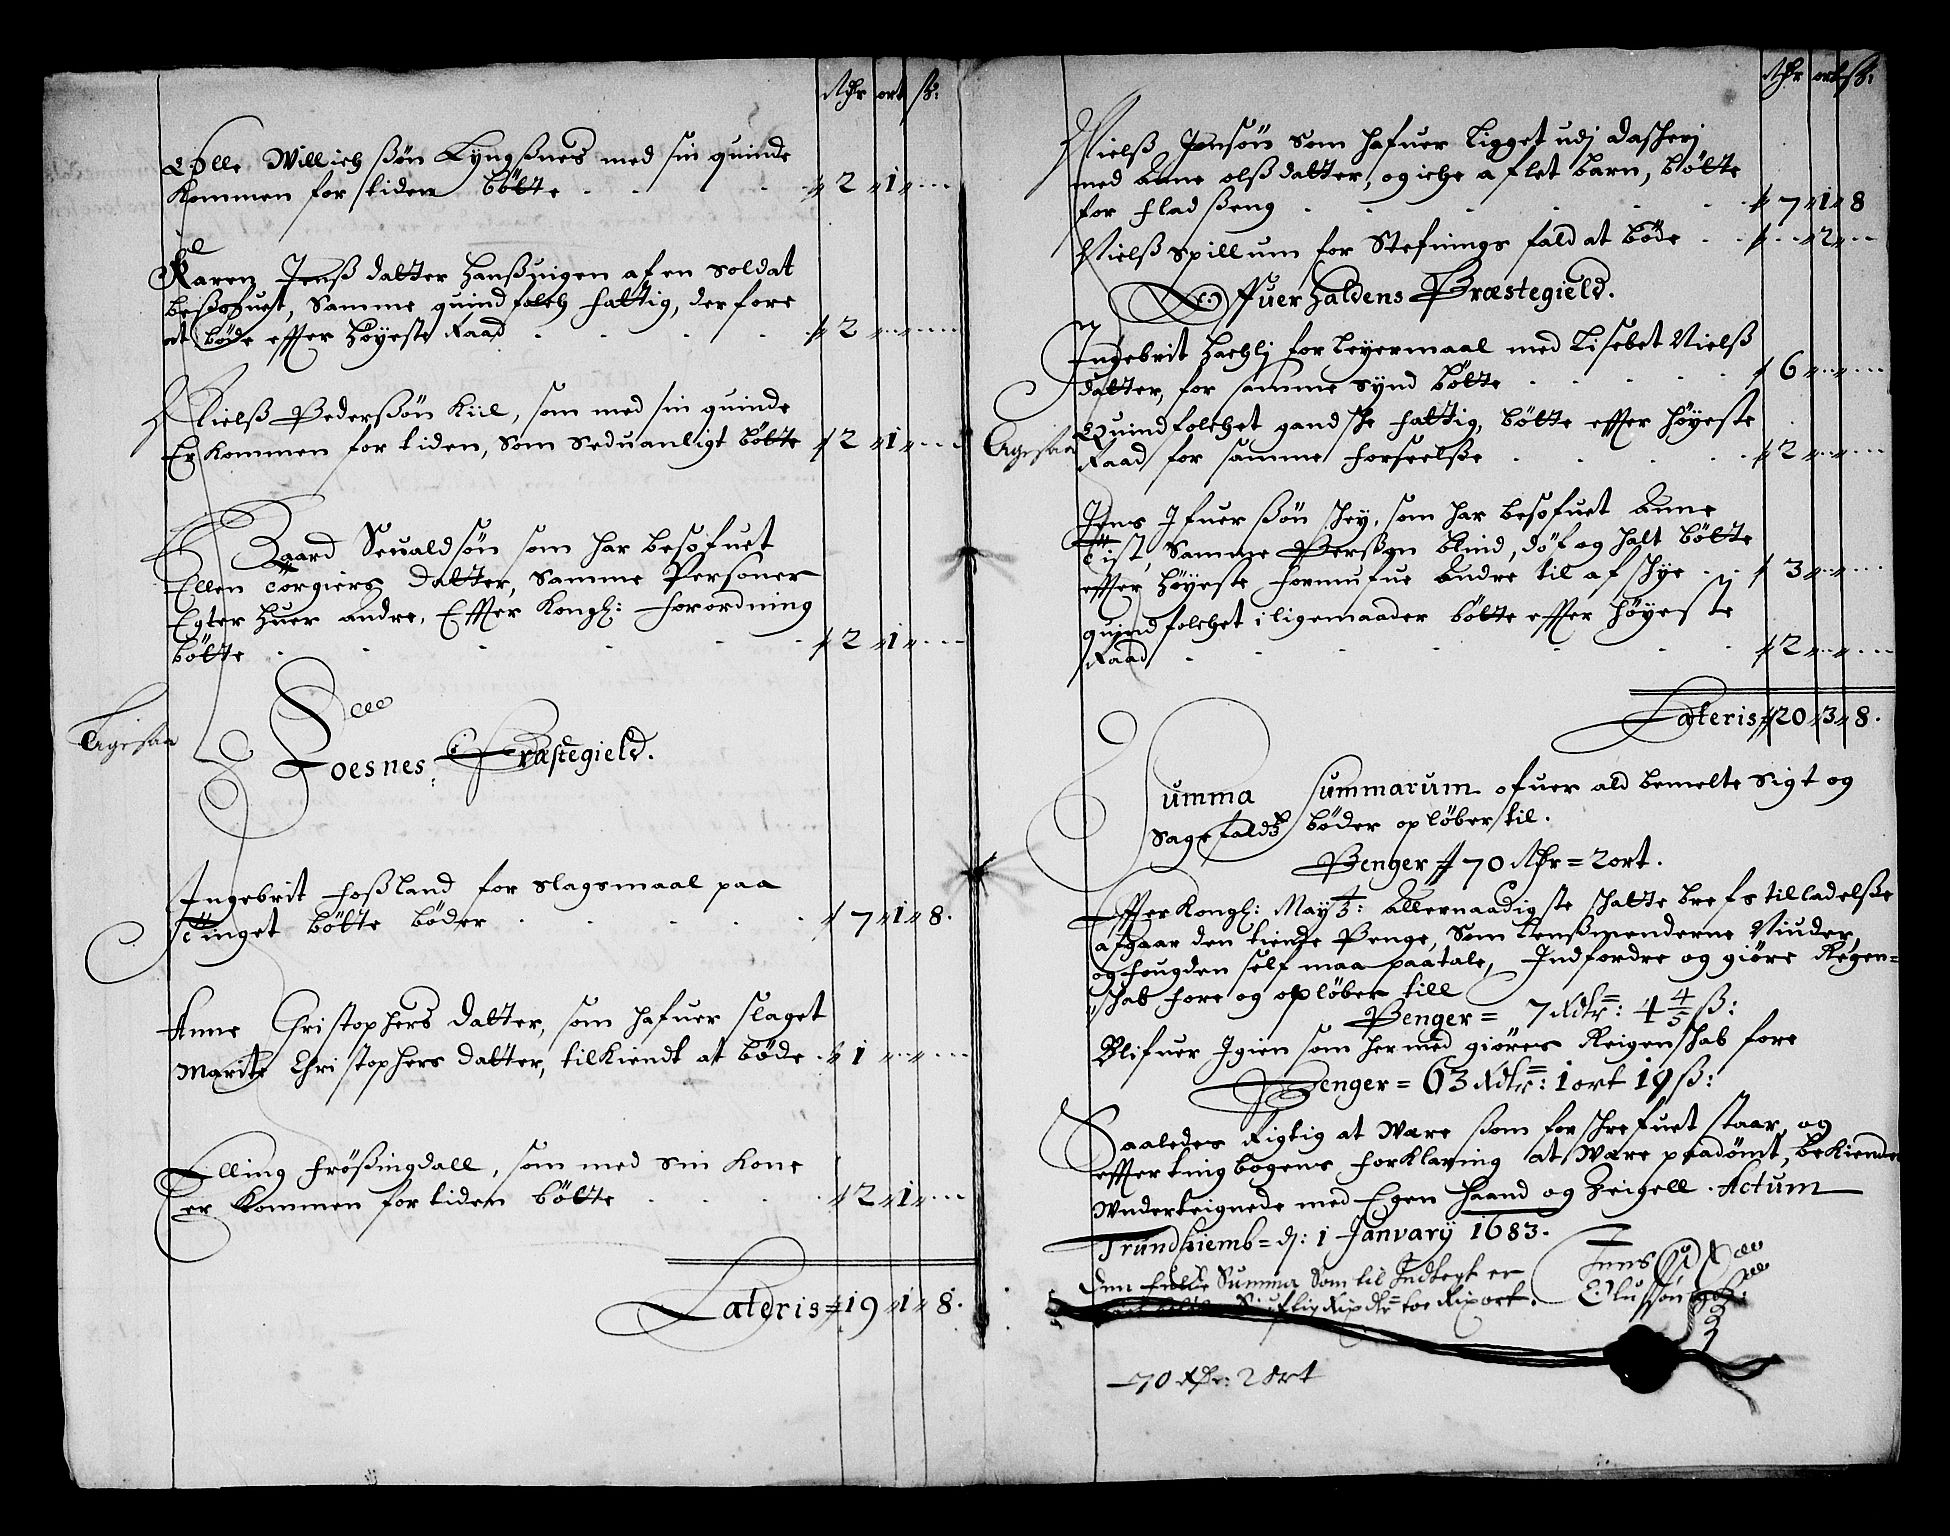 Rdr ort ß:
Olle Willichssøn Lyngßnes med sin quinde
kommen for tiden bötte . . . 2 " 1 " ...
Karen Jensß datter Hanßuigen af en soldat
besofuet, samme quindfolch fattig, derfore
at böde effter Höyeste Raad . . . 2 " ... " ...
Nielß Pederßön Kiil, som med sin quinde
Er kommen for tiden, som seduanligt bötte 2 " 1 " ...
Baard Seualdsön som har besofuet
Ellen Törgiers datter, samme Personer
Egter huer andre, Effter Kongl: forordning
bötte . . . 2 " 1 " ...
Agesaa
Foesnes Præstegield.
Ingebrit Foßland for slagsmaal paa
tinget bötte böder . . . 7 " 1 " 8.
Anne Christophers datter, som hafuer slaget
Marite Christophers datter, tilkiendt at böde . 1 " ... " ...
Elling Frößingdall, som med sin kone
er kommen for tiden bötte . . . 2 " 1 " ...
Lateris 19 " 1 " 8.
Rdr ort ß:
Nielß Jensön som hafuer ligget udj
med Anne olß datter, og iche aflet barn, bötte
for fladßeng . . . 7 " 1 " 8
Nielß Spillum for Stefnings fald at böde . . . " 2 " ...
Offuerhaldens Præstegield.
Ingebrit Hachlj for leyermaal med Lisebet Nielß
datter, for samme synd bötte . . . 6 " ... " ...
Agesaa
Quindfolchet gandske fattig, bötte effter Höyeste
Raad for samme forseelße . . . 2 " ... " ...
Jens Ifuerßön Skey, som har besofuet Anne
samme Perßon blind, döf og halt bötte
effter Höyeste formufue Andre til afskye . . 3 " ... " ...
quindfolchet i ligemaader bötte effter Höyeste
Raad . . . 2 " ... " ...
Lateris 20 " 3 " 8.
Summa Summarum ofuer ald bemelte Sigt og
Sagefaldß böder opløber til.
Penger 70 Rdr = 2 ort.
Effter Kongl: Maytz: Allernaadigste skatte brefs tilladelße
afgaar den tiende Penge, som Lenßmenderne Niuder,
og fougden self maa paatale, Indfordre og giöre Regen=
skab fore og opløber till
Penger = 7 Rdr: 4 4/5 ß:
Blifuer Igien som hermed giøres Reigenskab fore
Penger = 63 Rdr: 1 ort 19 ß:
Saaledes Rigtig at Være ßom forskrefuet staar, og
effter tingbogens forklaring at Være paadömt, bekiender
Underteignede med Egen Haand og Zeigell. Actum
Trundhiemb = dj: 1 Janvary 1683.
Den fulde Summa som til Indtegt er
Siuftig Rixdr toe Rixort.
Jens
Olussön
70 Rdr: 2 Ort